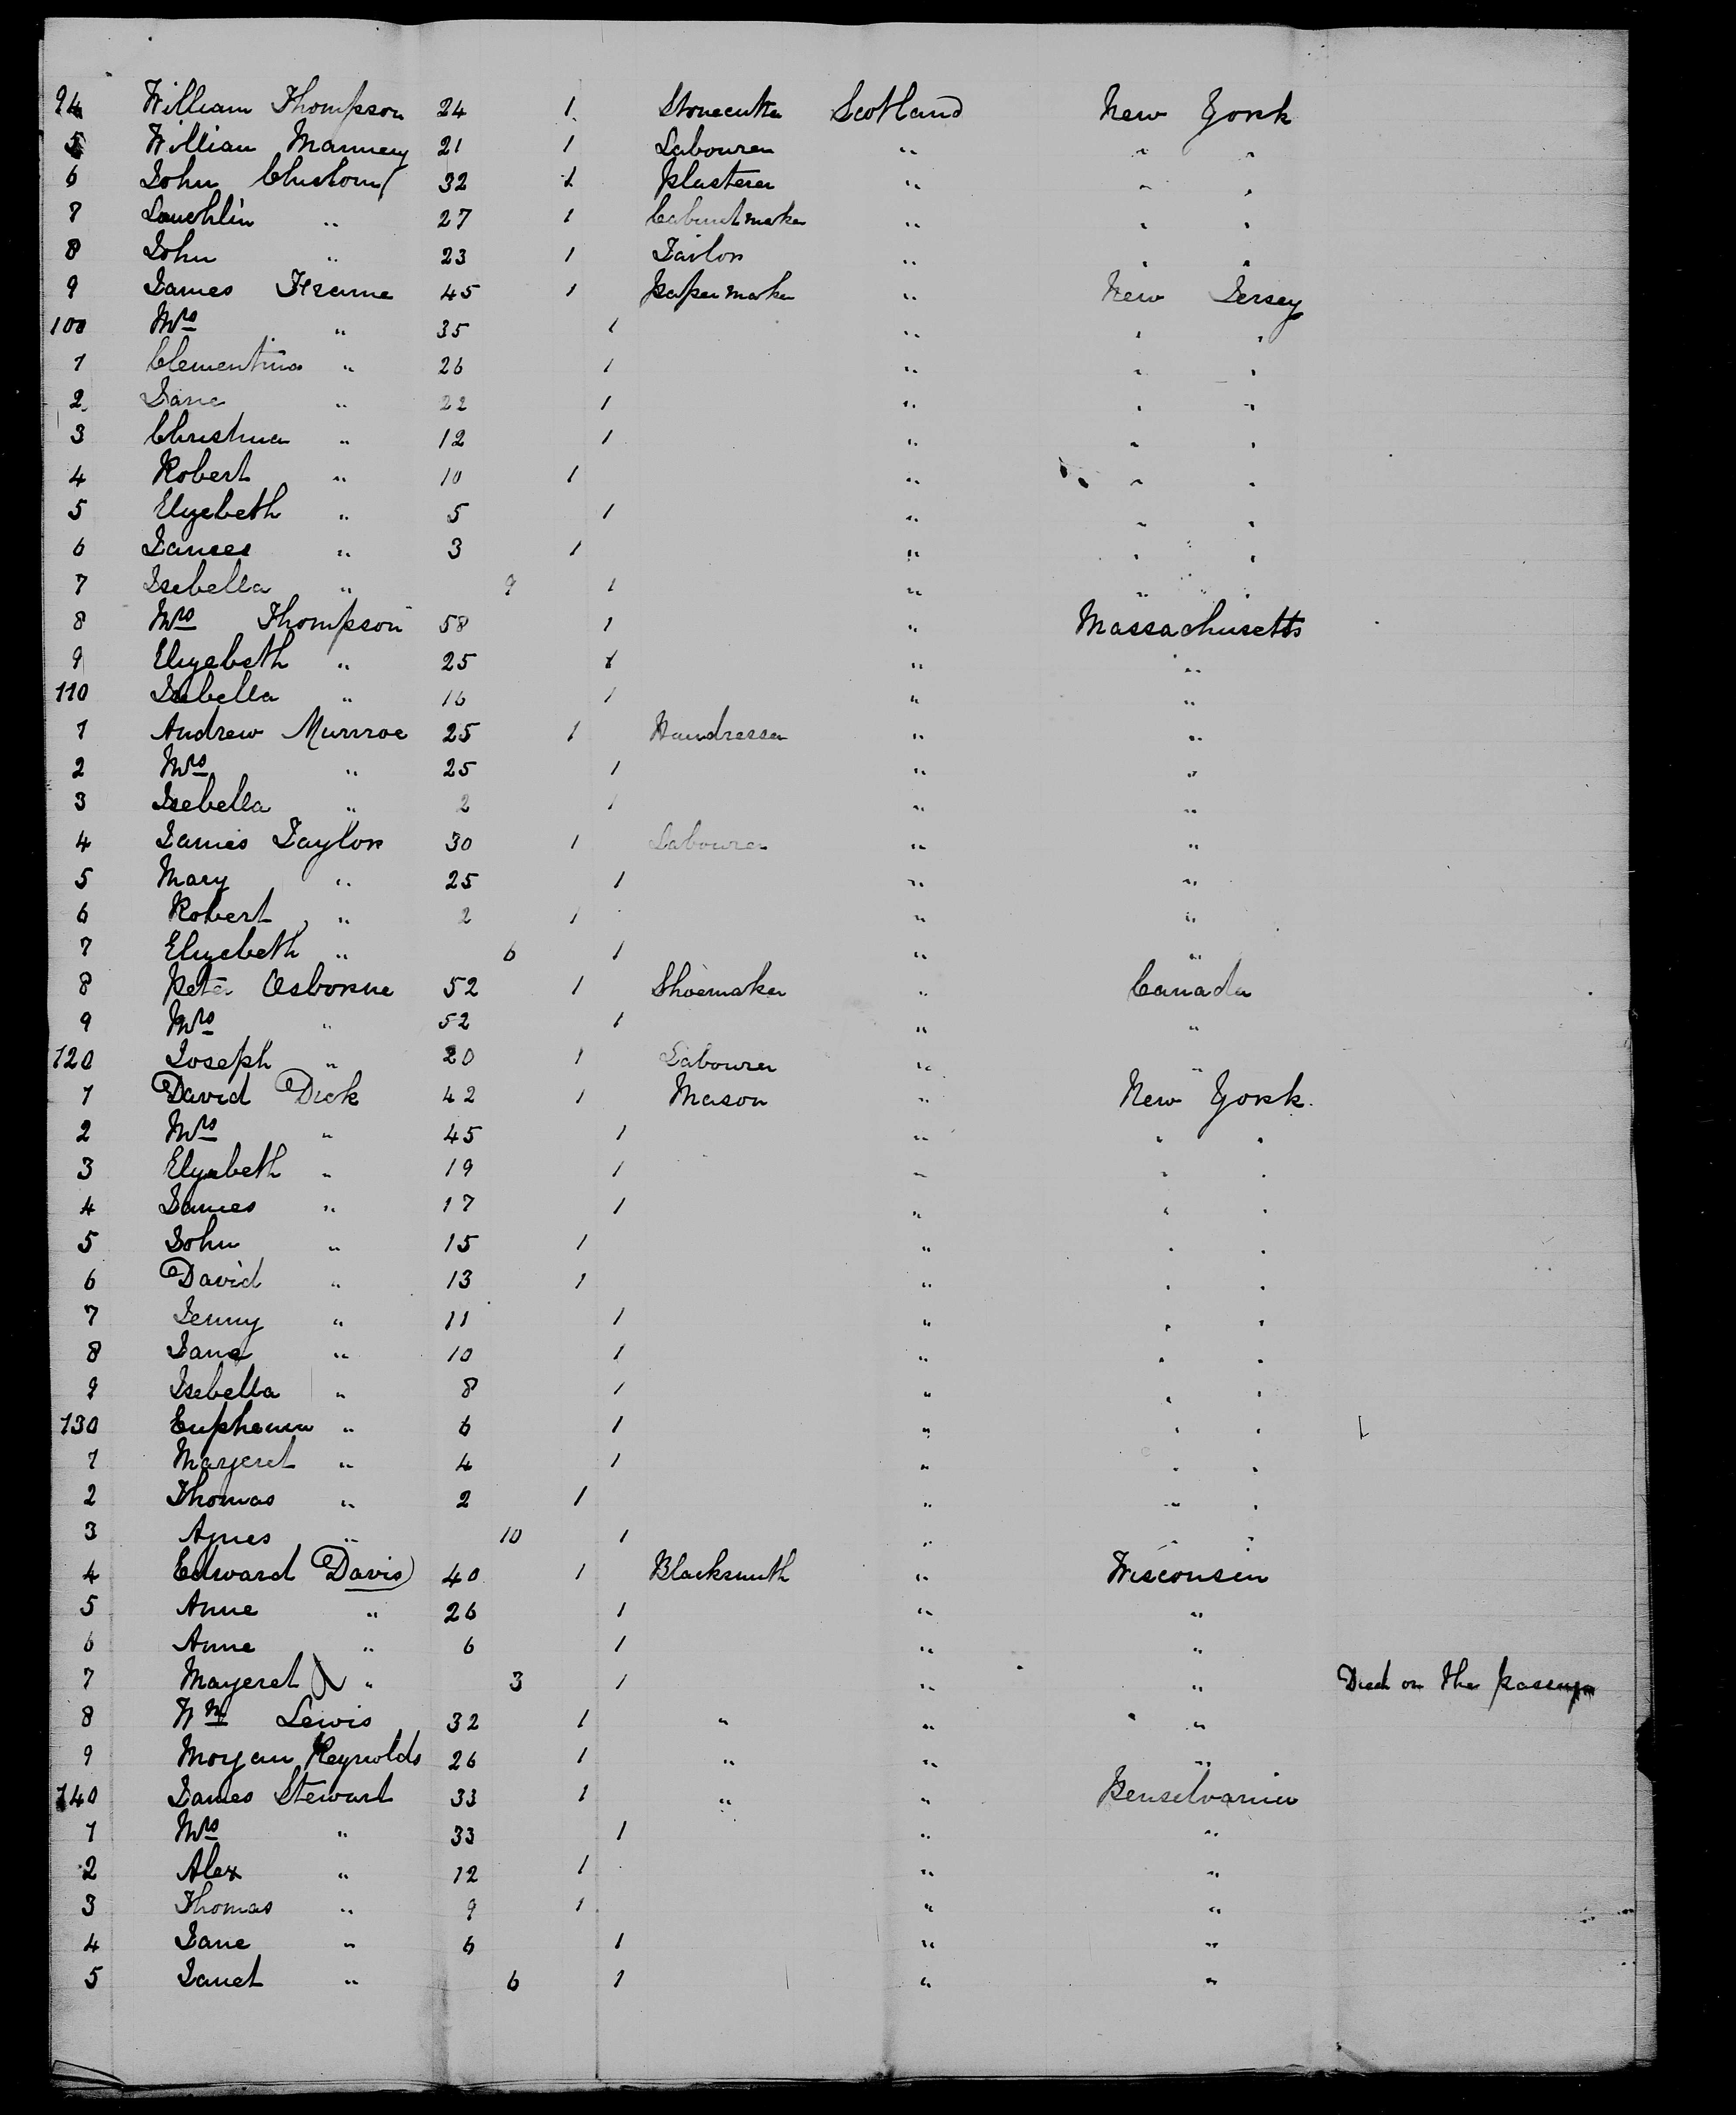 94 William Thompson 24 1 Stonecutter Scotland New York
5 William Mannery 21 1 Labourer " " "
6 John Chisholm 32 1 Plasterer " " "
7 Lauchlin " 27 1 Cabinetmaker " " "
8 John " 23 1 Tailor " " "
9 James Frame 45 1 Paper maker " New Jersey
100 Mrs " 35 1 " " "
1 Clementina " 26 1 " " "
2 Jane " 22 1 " " "
3 Christina " 12 1 " " "
4 Robert " 10 1 " " "
5 Elizebeth " 5 1 " " "
6 James " 3 1 " " "
7 Isebella " 9 1 " " "
8 Mrs Thompson 58 1 " Massachusetts
9 Elizabeth " 25 1 " "
110 Isebella " 16 1 " "
1 Andrew Munroe 25 1 Hairdresser " "
2 Mrs " 25 1 " "
3 Isebella " 2 1 " "
4 James Taylor 30 1 Labourer " "
5 Mary " 25 1 " "
6 Robert " 2 1 " "
7 Elizebeth " 6 1 " "
8 Peter Osborne 52 1 Shoemaker " Canada
9 Mrs " 52 1 " "
120 Joseph " 20 1 Labourer " "
1 David Dick 42 1 Mason " New York
2 Mrs " 45 1 " " "
3 Elizabeth " 19 1 " " "
4 James " 17 1 " " "
5 John " 15 1 " " "
6 David " 13 1 " " "
7 Jenny " 11 1 " " "
8 Jane " 10 1 " " "
9 Isebella " 8 1 " " "
130 Euphemia " 6 1 " " "
1 Margeret " 4 1 " " "
2 Thomas " 2 1 " " "
3 Agnes " 10 1 " " "
4 Edward Davis 40 1 Blacksmith " Wisconsin
5 Anne " 26 1 " "
6 Anne " 6 1 " "
7 Margeret " 3 1 " " Died on the passage
8 Wm Lewis 32 1 " " "
9 Morgan Reynolds 26 1 " " "
140 James Stewart 33 1 " " Penselvania
1 Mrs " 33 1 " "
2 Alex " 12 1 " "
3 Thomas " 9 1 " "
4 Jane " 6 1 " "
5 Janet " 6 1 " "